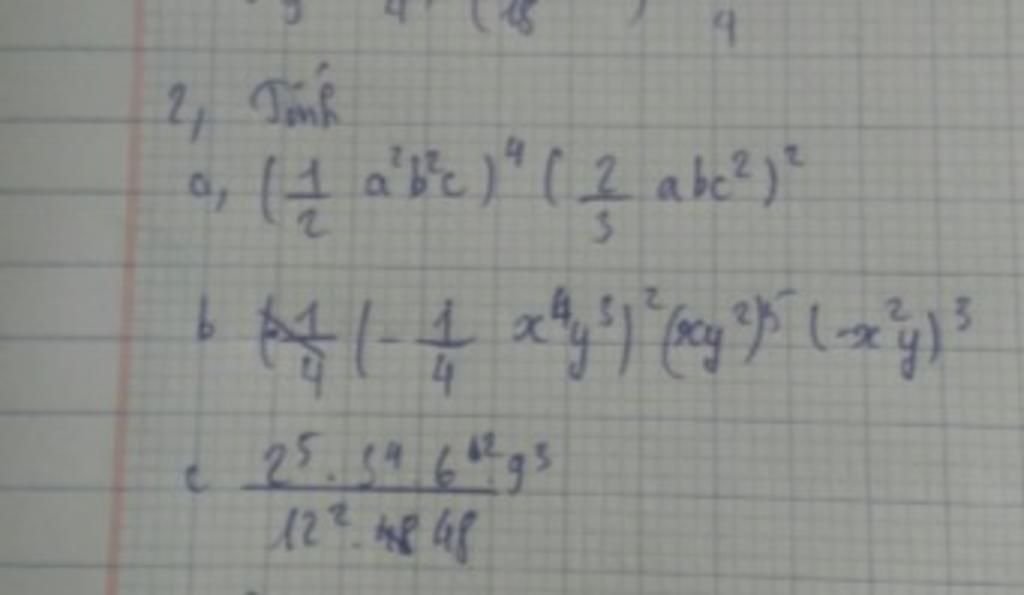 2, Tính
a, (1/2 a²b²c)⁴ (2/3 abc²)²
b (-1/4 x⁴y³)² (xy²)⁵ (-x²y)³
c 2⁵ . 3⁴ 6¹² . 9³ / 12² . 48